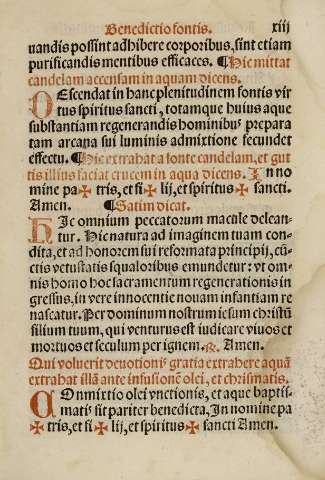 Benedictio fontis. xiij
uandis possint adhibere corporibus, sint etiam
purificandis mentibus efficaces. ¶Hic mittat
candelam accensam in aquam dicens.
DEscendat in hanc plenitudinem fontis vir
tus spiritus sancti, totamque huius aque
substantiam regenerandis hominibꝰ prepara
tam arcana sui luminis admixtione fecundet
effectu. ¶Hic extrahat a fonte candelam, et gut
tis illius faciat crucem in aqua dicens. In no
mine pa✠tris, et fi✠lij, et spiritus ✠ sancti.
Amen. ¶Statim dicat.
HIc omnium peccatorum macule delean-
tur. Hic natura ad imaginem tuam con-
dita, et ad honorem sui reformata principij, cũ-
ctis vetustatis squaloribus emundetur: vt om-
nis homo hoc sacramentum regenerationis in
gressus, in vere innocentie nouam infantiam re
nascatur. Per dominum nostrum iesum christũ
filium tuum, qui venturus est iudicare viuos et
mortuos et seculum per ignem. ℟. Amen.
Qui voluerit deuotionis gratia extrahere aquã
extrahat illã ante infusionẽ olei, et chrismatis.
COnmixtio olei vnctionis, et aque baptis-
matis sit pariter benedicta, In nomine pa
✠tris, et fi✠lij, et spiritus✠sancti Amen.